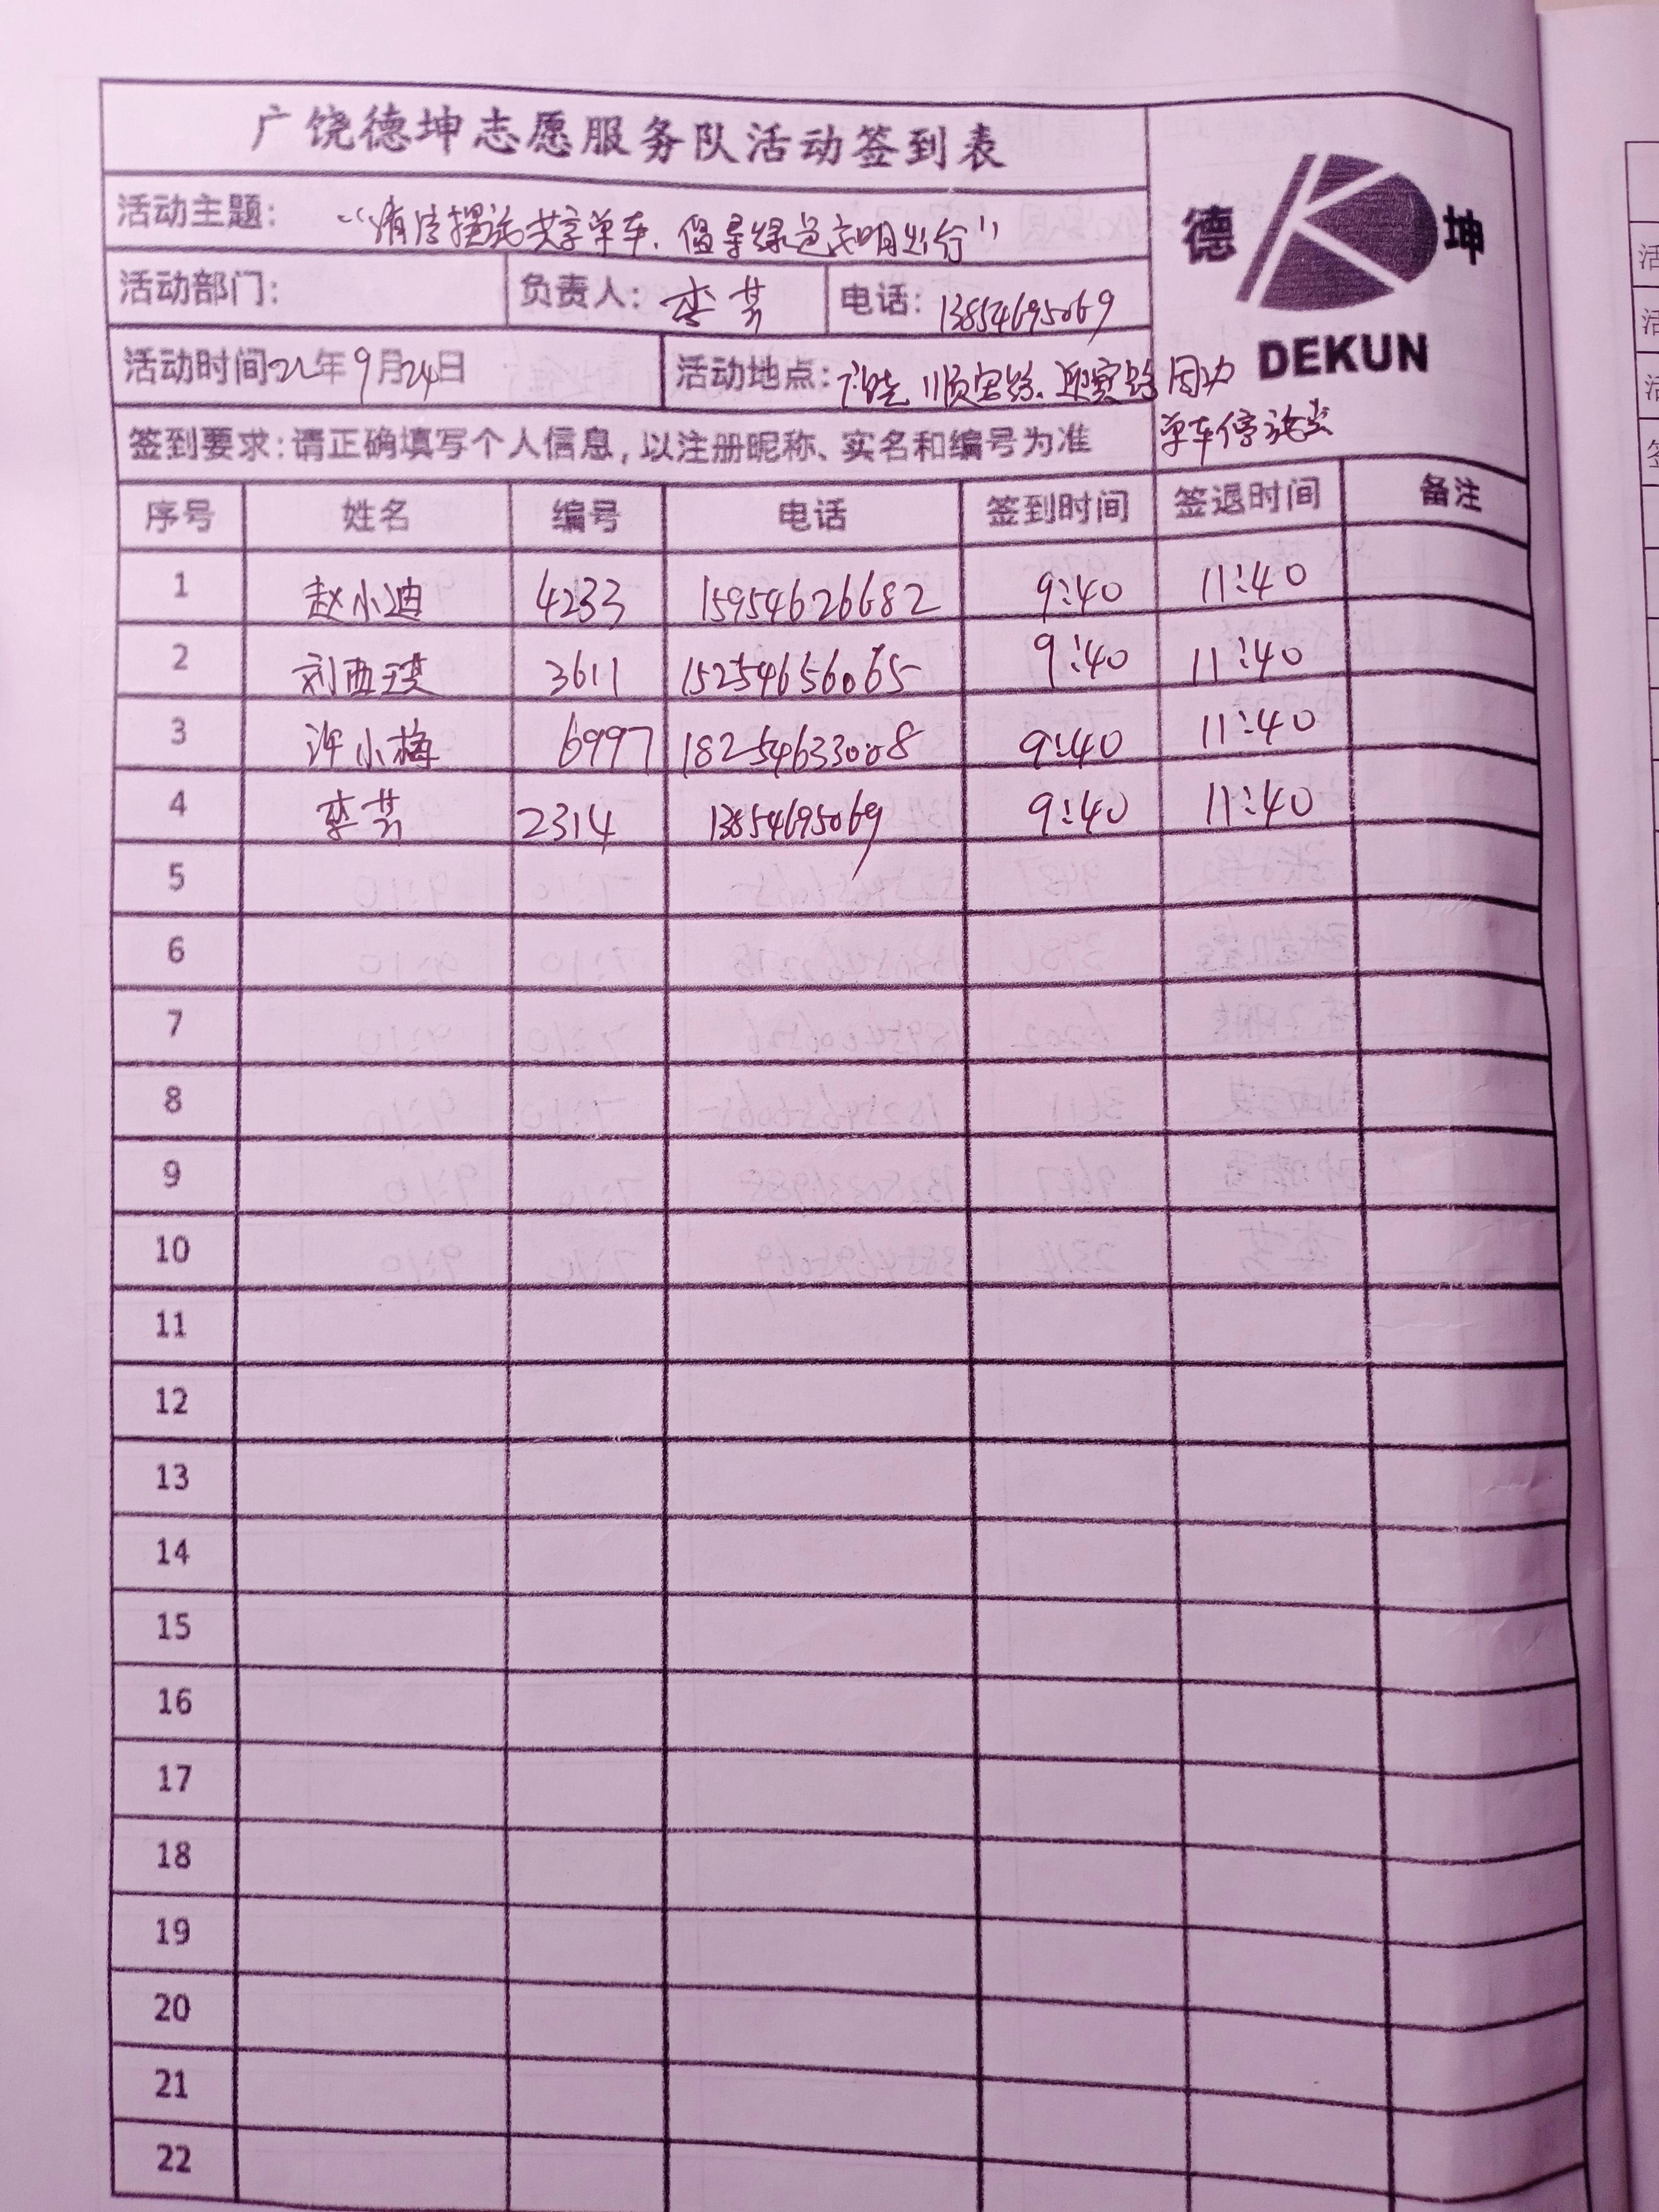 广饶德坤志愿服务队活动签到表
活动主题: “清洁摆放共享单车,倡导绿色文明出行”
活动部门: 负责人: 李芳 电话: 13854695069
活动时间22年9月24日 活动地点: 广饶 顺安路、迎宾路 周边
单车停放点
签到要求:请正确填写个人信息,以注册昵称、实名和编号为准
德 坤
DEKUN
序号 姓名 编号 电话 签到时间 签退时间 备注
1 赵小迪 4233 15954626682 9:40 11:40
2 刘西琪 3611 15254656065 9:40 11:40
3 许小梅 6997 18254633008 9:40 11:40
4 李芳 2314 13854695069 9:40 11:40
5
6
7
8
9
10
11
12
13
14
15
16
17
18
19
20
21
22